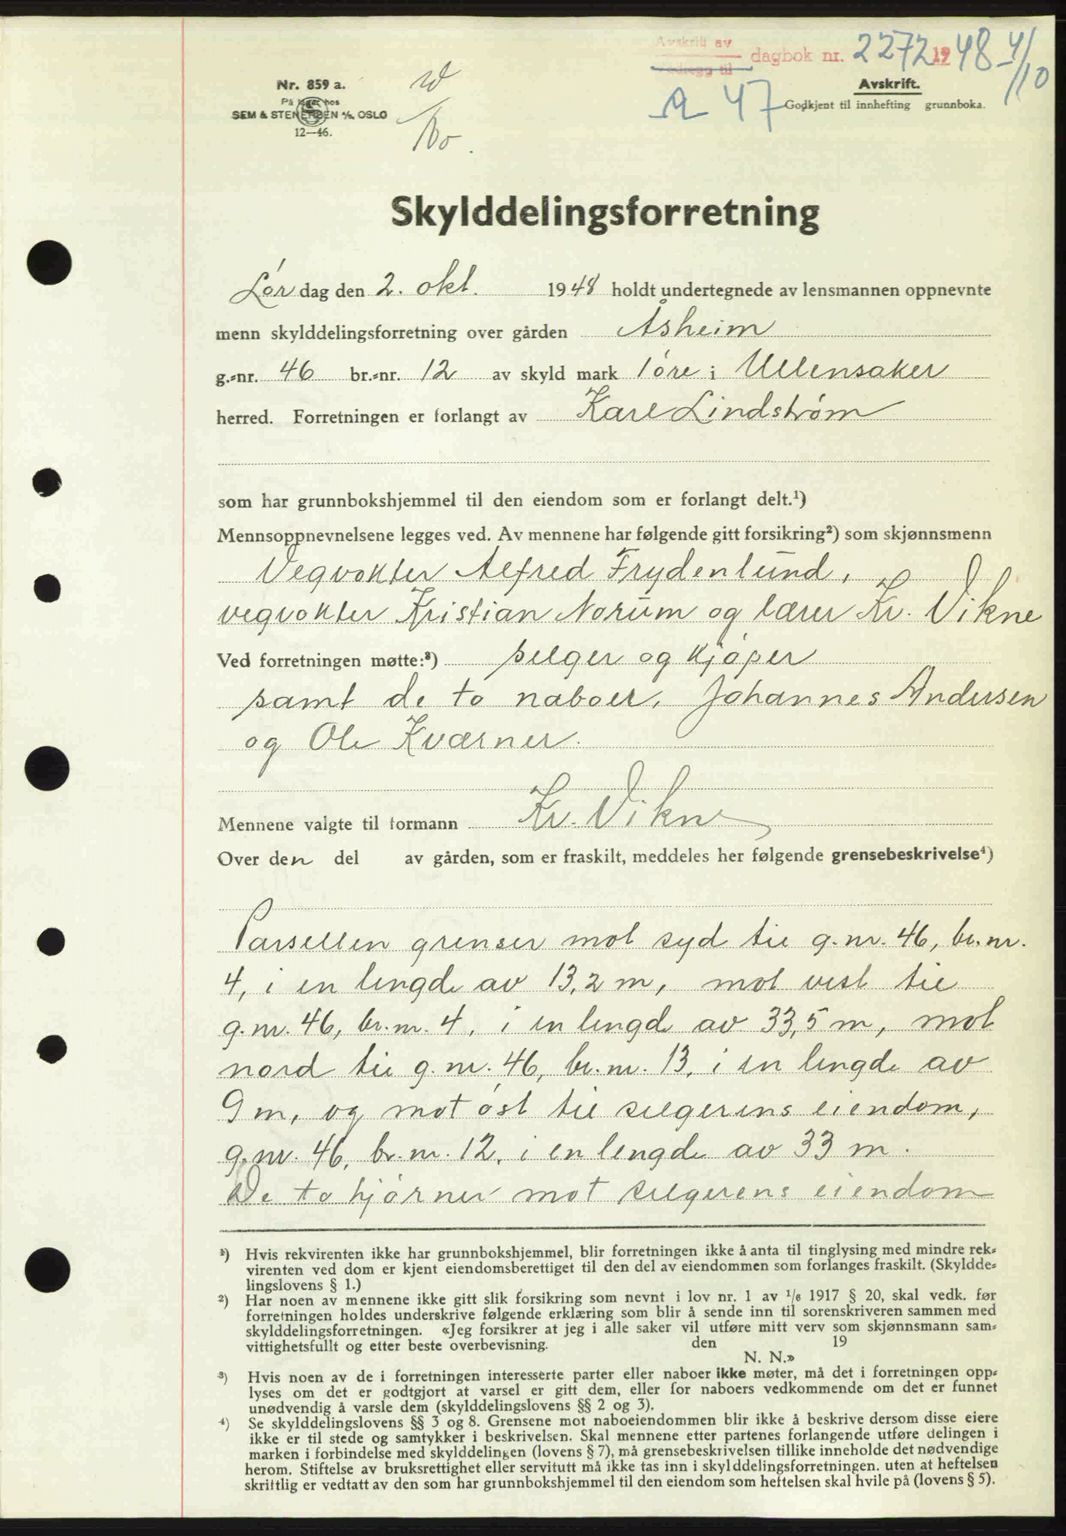 Avskrift av
Vedlegg til dagbok nr. 2272 1948 4/10
Nr. 859 a.
På lager hos
SEM & STENERSEN A/S, OSLO
12—46.
Avskrift.
Godkjent til innhefting grunnboka.
A 47
Skylddelingsforretning
Lør dag den 2. okt. 1948 holdt undertegnede av lensmannen oppnevnte
menn skylddelingsforretning over gården Åsheim
g.-nr. 46 br.-nr. 12 av skyld mark 1 øre i Ullensaker
herred. Forretningen er forlangt av Kare Lindstrøm
som har grunnbokshjemmel til den eiendom som er forlangt delt.¹)
Mennsoppnevnelsene legges ved. Av mennene har følgende gitt forsikring²) som skjønnsmenn
Vegvokter Alfred Frydenlund,
vegvokter Kristian Norum og lærer Kr. Vikne
Ved forretningen møtte:³) selger og kjøper
samt de to naboer, Johannes Andersen
og Ole Kværner.
Mennene valgte til formann Kr. Vikne
Over den del av gården, som er fraskilt, meddeles her følgende grensebeskrivelse⁴)
Parsellen grenser mot syd til g.nr. 46, br.nr.
4, i en lengde av 13,2 m, mot vest til
g.nr. 46, br.nr. 4, i en lengde av 33,5 m, mot
nord til g.nr. 46, br.nr. 13, i en lengde av
9 m, og mot øst til selgerens eiendom,
g.nr. 46, br.nr. 12, i en lengde av 33 m.
De to hjørner mot selgerens eiendom
¹) Hvis rekvirenten ikke har grunnbokshjemmel, blir forretningen ikke å anta til tinglysing med mindre rek-
virenten ved dom er kjent eiendomsberettiget til den del av eiendommen som forlanges fraskilt. (Skyldde-
lingslovens § 1.)
²) Har noen av mennene ikke gitt slik forsikring som nevnt i lov nr. 1 av 1/6 1917 § 20, skal vedk. før
forretningen holdes underskrive følgende erklæring som blir å sende inn til sorenskriveren sammen med
skylddelingsforretningen. «Jeg forsikrer at jeg i alle saker vil utføre mitt verv som skjønnsmann sam-
vittighetsfullt og etter beste overbevisning. den 19
N. N.»
³) Hvis noen av de i forretningen interesserte parter eller naboer ikke møter, må det i forretningen opp-
lyses om det er godtgjort at varsel er gitt dem, eller for naboers vedkommende om det er funnet
unødvendig å varsle dem (skylddelingslovens §§ 2 og 3).
⁴) Se skylddelingslovens §§ 3 og 8. Grensene mot naboeiendommen blir ikke å beskrive dersom disse eiere
ikke er til stede og samtykker i beskrivelsen. Skal mennene etter partenes forlangende utføre delingen i
marken i forbindelse med skylddelingen (lovens § 7), må grensebeskrivelsen tillike inneholde det nødvendige
herom. Stiftelse av bruksrettighet eller servitutt må ikke tas inn i skylddelingsforretningen. uten at heftelsen
skriftlig er vedtatt av den som har grunnbokshjemmel til den eiendom som heftelsen skal hvile på (lovens § 5).